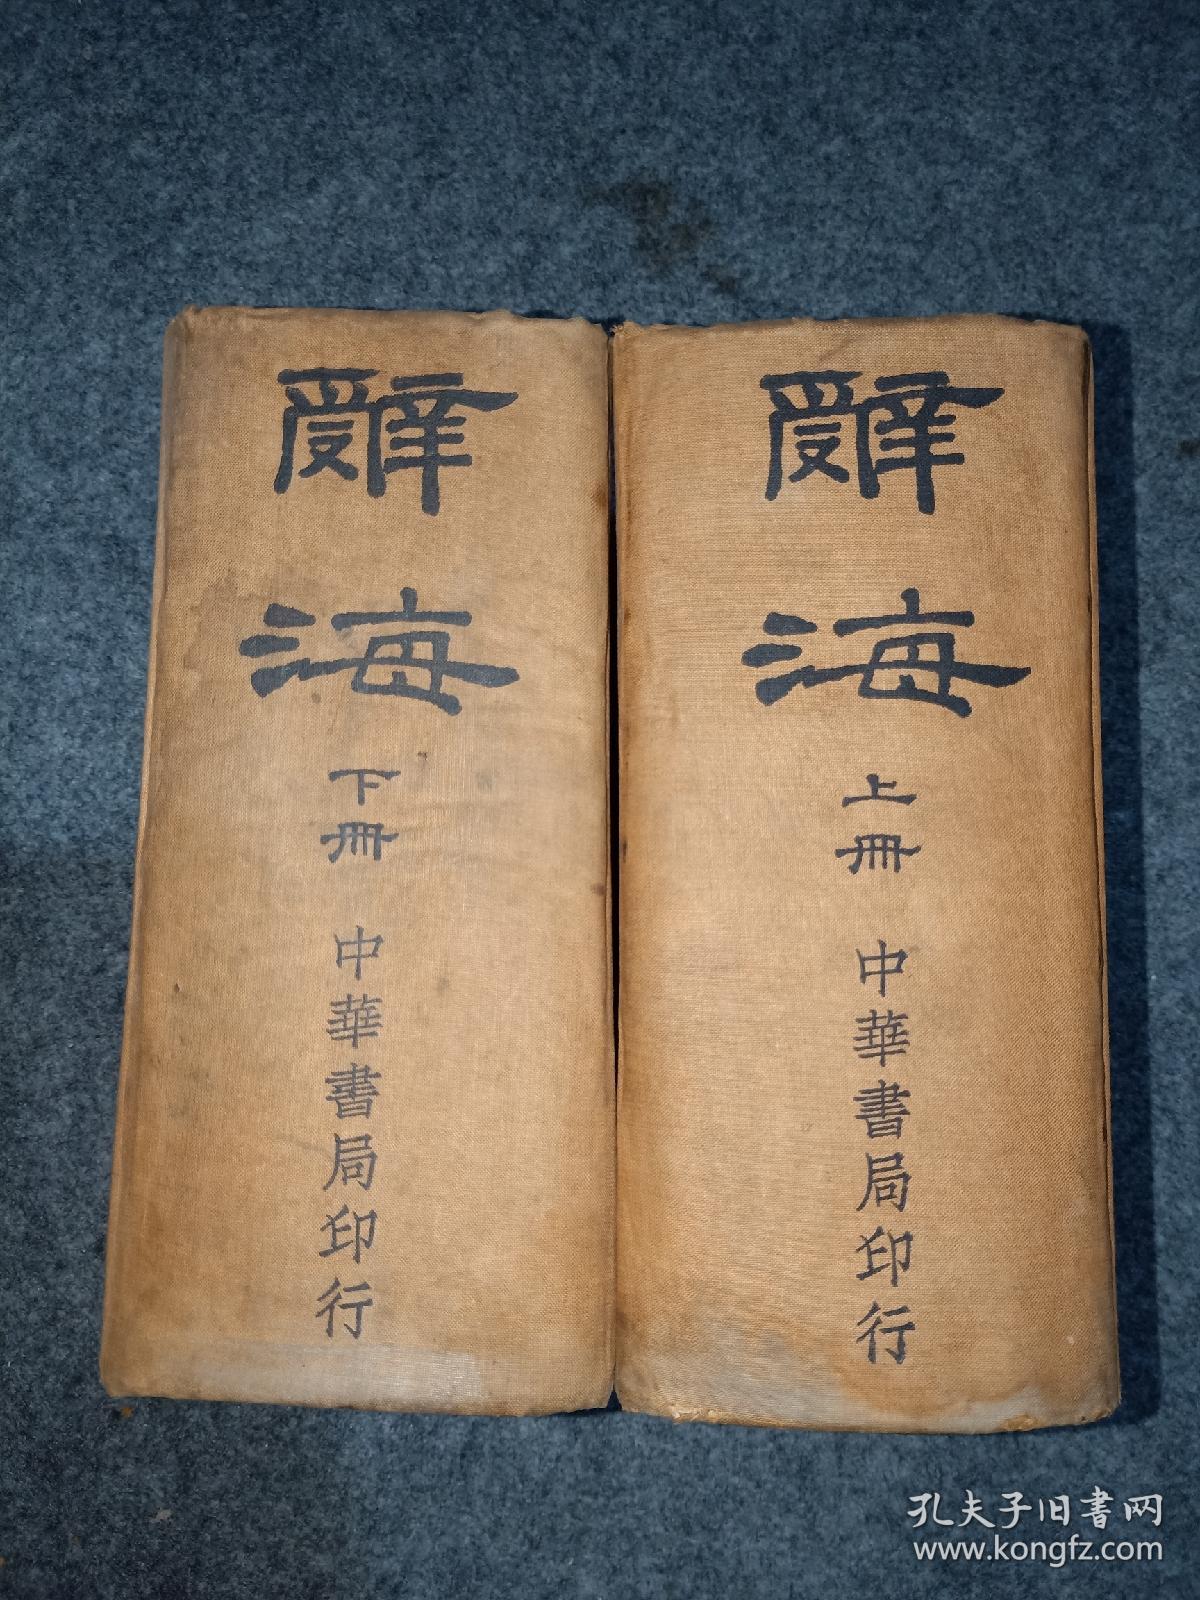 辭海
上冊
中華書局印行
辭海
下冊
中華書局印行
孔夫子旧书网
www.kongfz.com